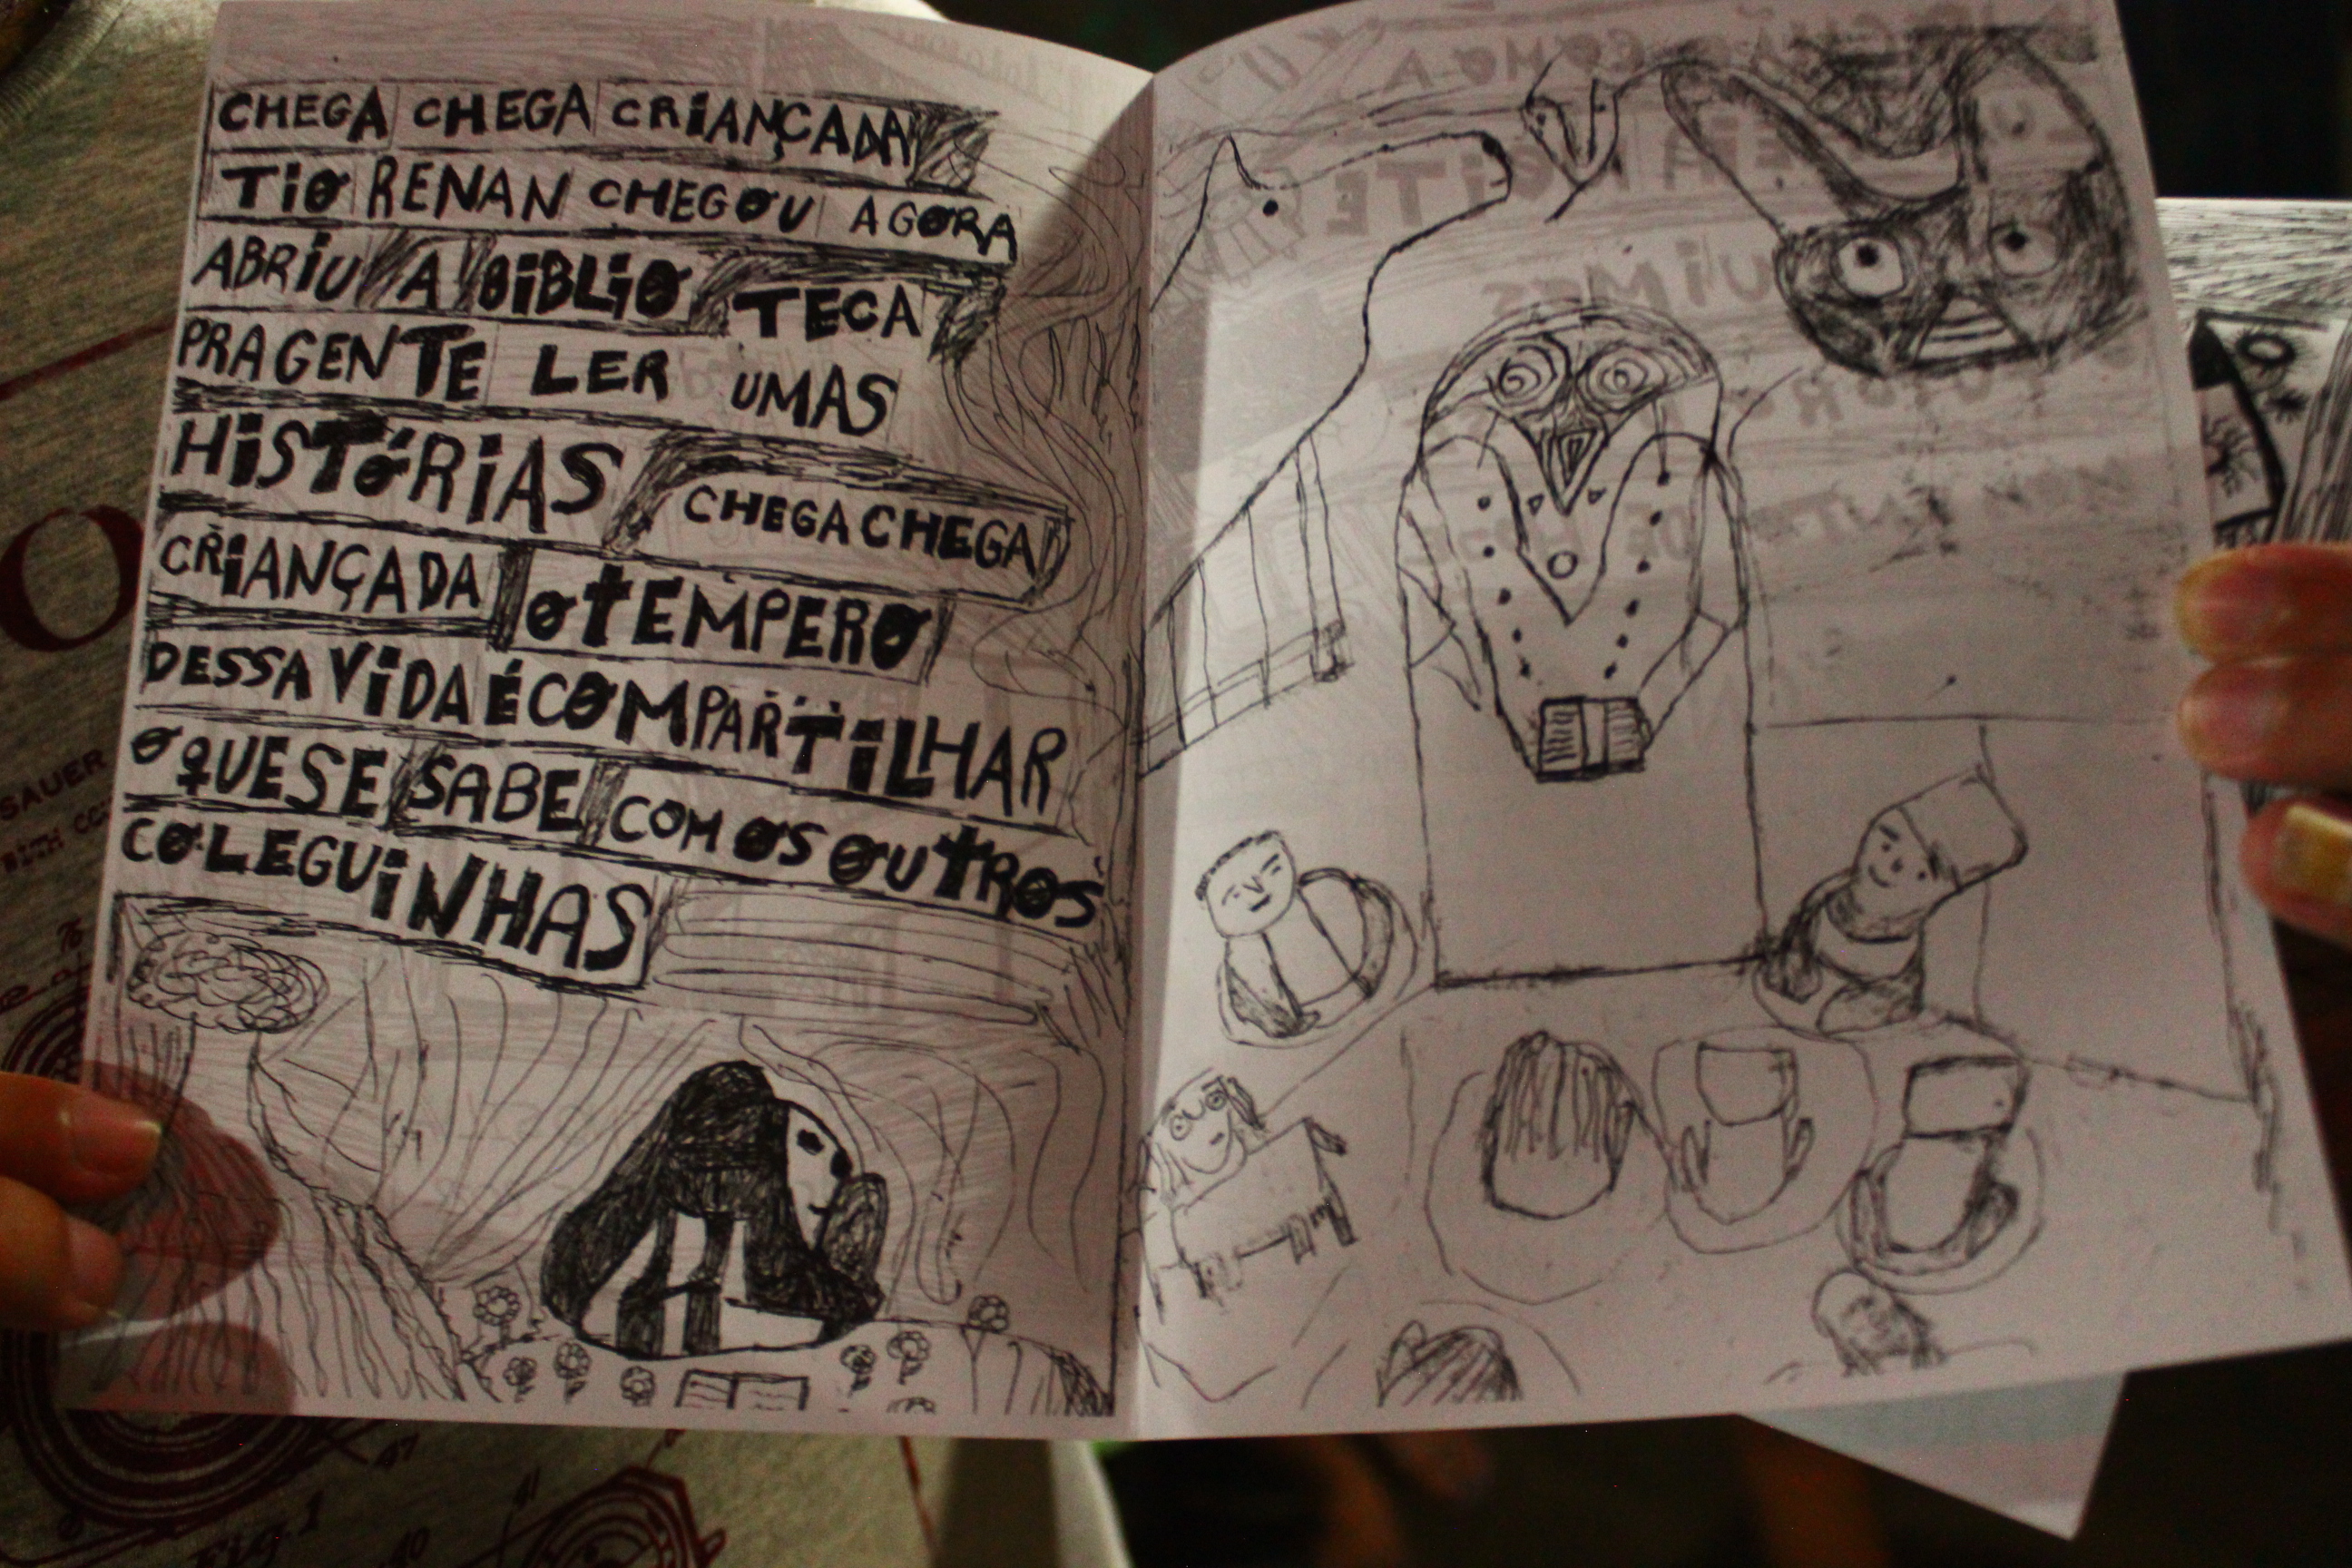 CHEGA CHEGA CRIANÇADA
TIO RENAN CHEGOU AGORA
ABRIU A BIBLIO TECA
PRA GENTE LER UMAS
HISTÓRIAS CHEGA CHEGA
CRIANÇADA O TEMPERO
DESSA VIDA É COMPARTILHAR
O QUE SE SABE COM OS OUTROS
COLEGUINHAS
O
SAUER
Fig. 1